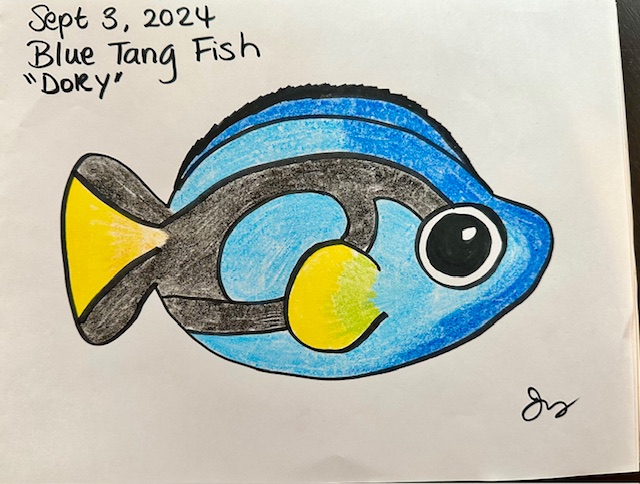 Sept 3, 2024
Blue Tang Fish
"DoRY"